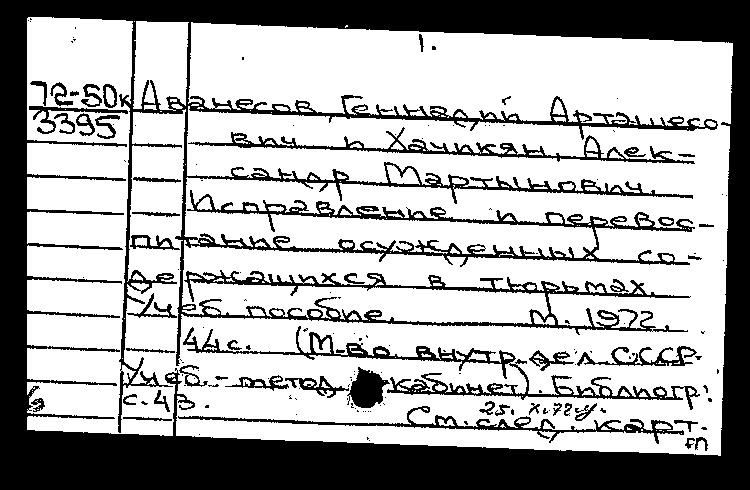 1.
72-50к Аванесов, Геннадий Арташесо-
3395
вич и Хачикян, Алек-
сандр Мартынович.
Исправление и перевос-
питание осужденных со-
держащихся в тюрьмах.
Учеб. пособие. М., 1972.
44 с. (М-во внутр. дел СССР.
Учеб.-метод. кабинет). Библиогр:
с. 43.
25. X. 72 г.
См. след. карт.